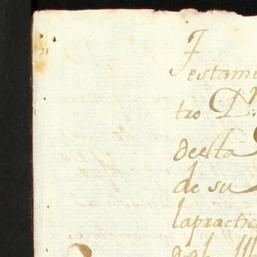 Testame
tro D.
deesta
de su
lapractic